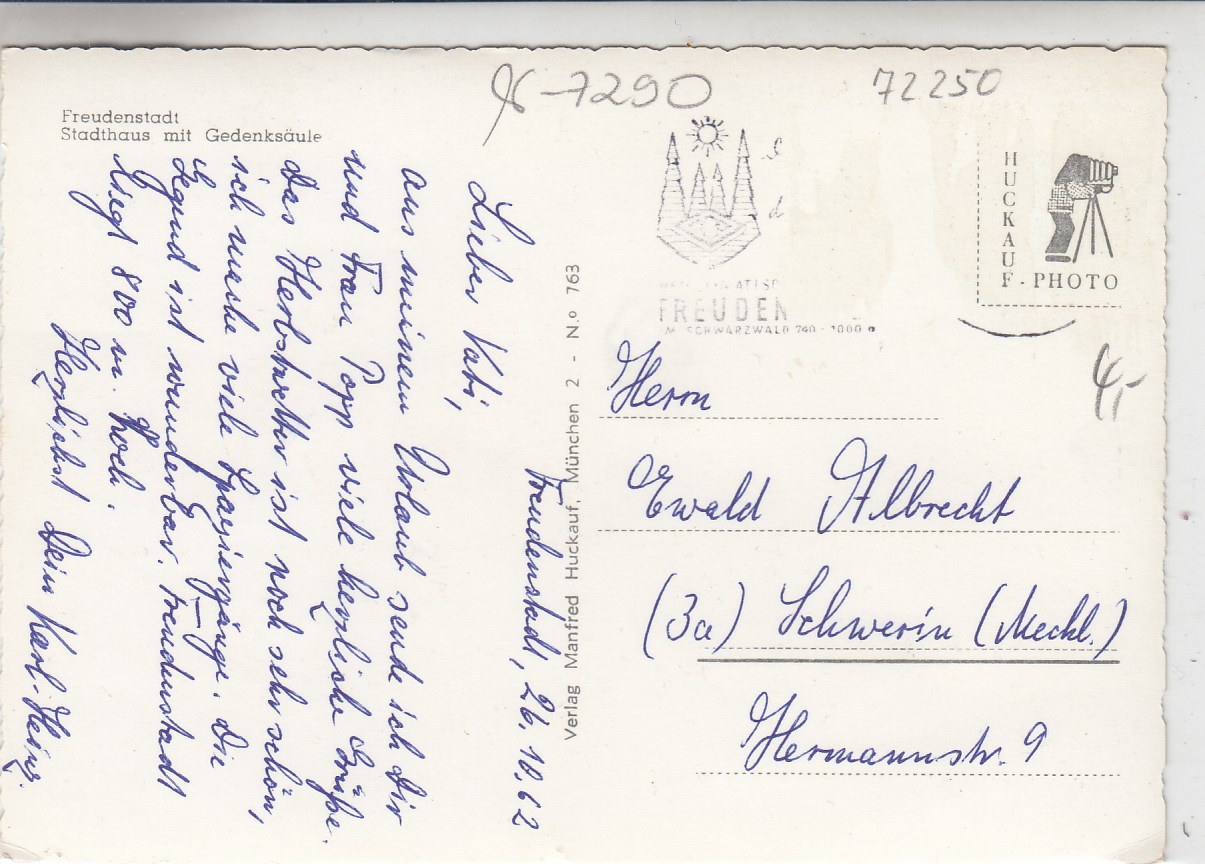 Freudenstadt
Stadthaus mit Gedenksäule
Freudenstadt, 26.10.62
Lieber Vati,
aus meinem Urlaub sende ich Dir
und Frau Popp viele herzliche Grüße.
Das Herbstwetter ist noch sehr schön,
ich mache viele Spaziergänge. Die
Gegend ist wunderbar. Freudenstadt
liegt 800 m. hoch.
Herzlichst Dein Karl-Heinz.
Verlag Manfred Huckauf, München 2 - N.o 763
7290
72250
FREUDEN
SCHWARZWALD 740 - 1000
HUCKAUF - PHOTO
4,-
Herrn
Ewald Albrecht
(3a) Schwerin (Meckl.)
Hermannstr. 9